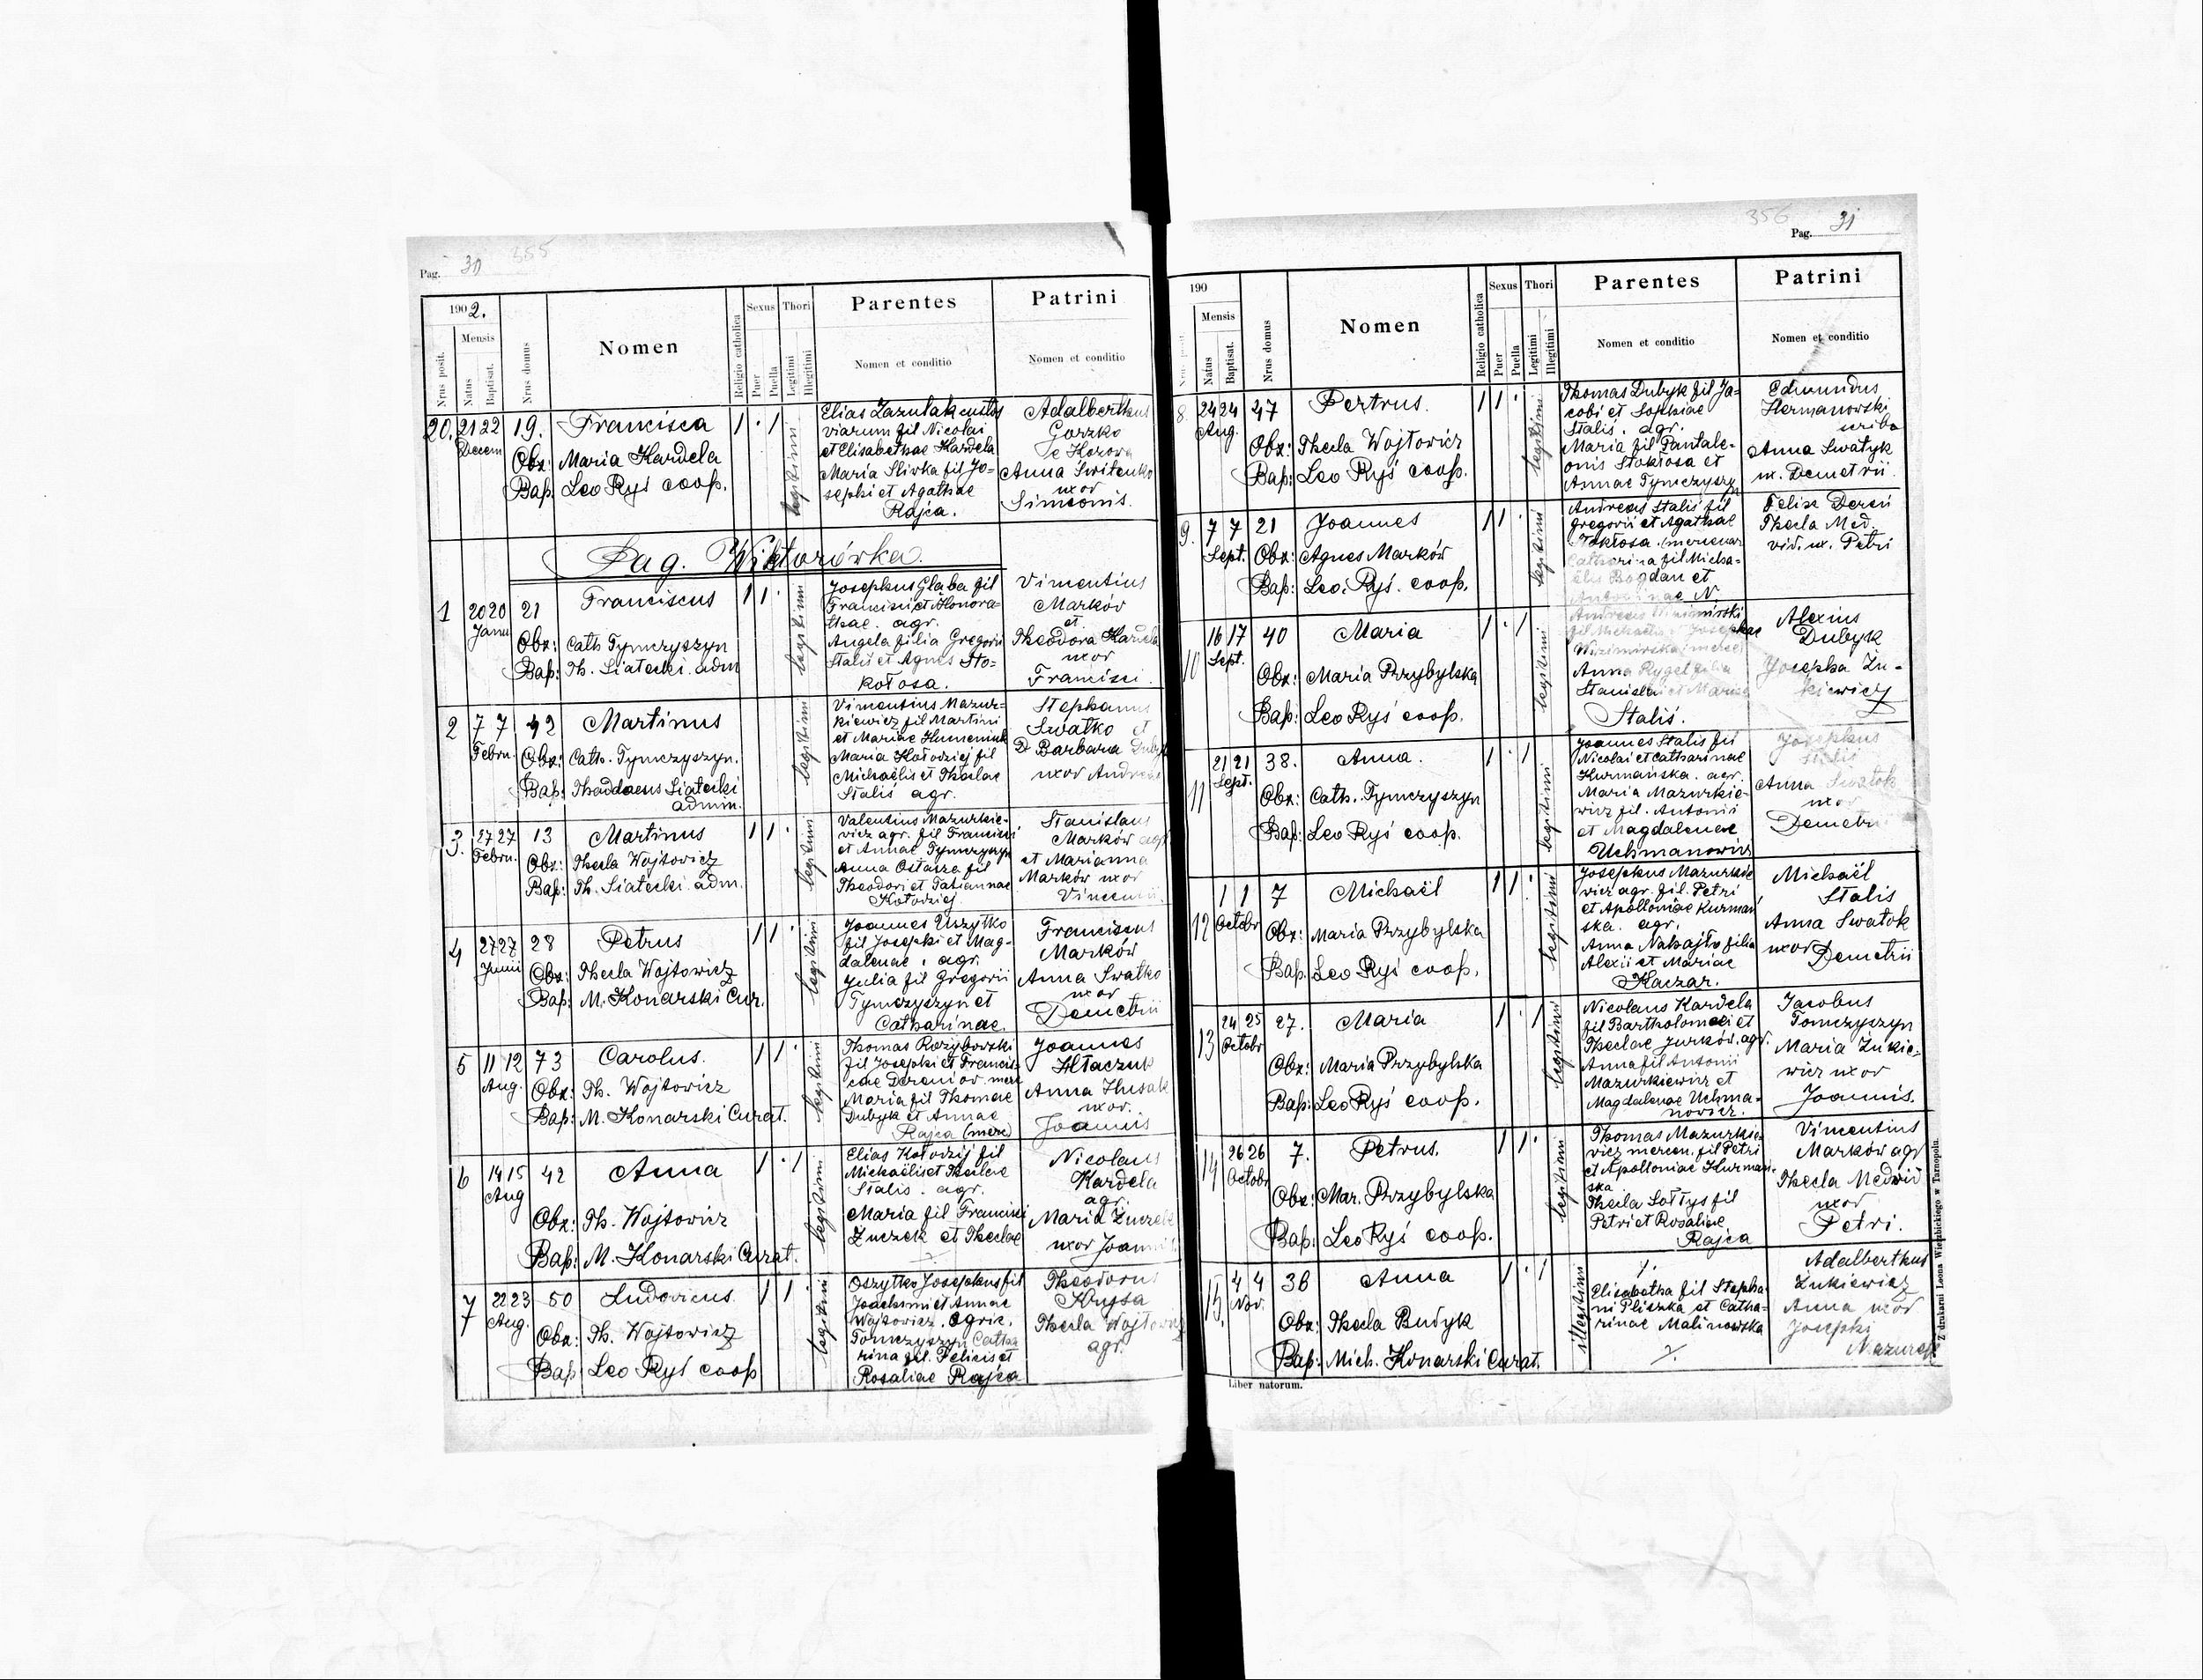 Pag. 30 355
1902.
Nrus posit.
Mensis
Natus
Baptisat.
Nrus domus
Nomen
Religio catholica
Sexus
Puer
Puella
Thori
Legitimi
Illegitimi
Parentes
Nomen et conditio
Patrini
Nomen et conditio
20. 21 22 Decem 19. Francisca 1 · 1 legitimi
Obx: Maria Kardela
Bap: Leo Ryś coop.
Elias Zazulak custos
viarum fil Nicolai
et Elisabethae Kardela
Maria Slivka fil Jo-
sephi et Agathae
Rajca.
Adalbertus
Gorzko
Anna Switenko
uxor
Simeonis.
Pag. Wiktorówka.
1 20 20 Janu 21 Franciscus 1 1 · legitimi
Obx: Cath Tymczyszyn
Bap: Th. Siatecki adm
Josephus Glaba fil
Francisci et Honora-
thae. agr.
Angela filia Gregorii
Staliś et Agnes Sto-
kołosa.
Vincentius
Marków
et
Theodora Kardela
uxor
Francisci.
2 7 7 Febru. 42 Martinus legitimi
Obx: Cath. Tymczyszyn.
Bap: Thaddaeus Siatecki
admin.
Vincentius Mazur-
kiewicz fil Martini
et Mariae Humeniuk
Maria Kołodziej fil
Michaëlis et Theclae
Staliś agr.
Stephanus
Swatko et
Barbara
uxor
3. 27 27 Febru. 13 Martinus 1 1 · legitimi
Obx: Thecla Wojtowicz
Bap: Th. Siatecki. adm.
Valentius Mazurkie-
wicz agr. fil Francisci
et Annae Tymczyszyn
Anna fil
Theodori et Tatiannae
Kołodziej
Stanislaus
Marków agr
et Marianna
Marków uxor
Vincentii
4 27 27 Junii 28 Petrus 1 1 · legitimi
Obx: Thecla Wojtowicz
Bap: M. Konarski Cur.
Joannes Uszytko
fil Josephi et Mag-
dalenae, agr.
Julia fil Gregorii
Tymczyszyn et
Catharinae.
Franciscus
Marków
Anna Swatko
uxor
Demetrii
5 11 12 Aug. 73 Carolus. 1 1 · legitimi
Obx: Th. Wojtowicz
Bap: M. Konarski Curat.
Thomas Rozyborski
fil Josephi et Francis-
cae
Maria fil Thomae
Dubyk et Annae
Rajca (merc)
Joannes
Hłaczuk
Anna Husak
uxor.
Joannis
6 14 15 Aug 42 Anna 1 · 1 legitimi
Obx: Th. Wojtowicz
Bap: M. Konarski Curat.
Elias Kołodzij fil
Michaëlis et Theclae
Stalis. agr.
Maria fil Francisci
Żuczek et Theclae
Nicolaus
Kardela
agr.
Maria
uxor Joannis
7 22 23 Aug. 50 Ludovicus. 1 1 · legitimi
Obx: Th. Wojtowicz
Bap: Leo Ryś coop
Oszytko Josephus fil
Joachimi et Annae
Wojtowicz. agric.
Tomczyszyn Catha
rina fil. Felicis et
Rosaliae Rajca
Theodorus
Krysa
Thecla Wojtowicz
agr.
356 Pag. 31
190
Mensis
Natus
Baptisat.
Nrus domus
Nomen
Religio catholica
Sexus
Puer
Puella
Thori
Legitimi
Illegitimi
Parentes
Nomen et conditio
Patrini
Nomen et conditio
8. 24 24 Aug. 47 Pertrus. 1 1 · legitimi
Obx: Thecla Wojtowicz
Bap: Leo Ryś coop.
Thomas Dubyk fil Ja-
cobi et Sophiae
Staliś. agr.
Maria fil Pantale-
onis Stokłosa et
Annae Tymczyszyn
Edmundus
Hermanowski
scriba
Anna Swatyk
ux. Demetrii.
9. 7 7 Sept. 21 Joannes 1 1 · legitimi
Obx: Agnes Marków
Bap: Leo. Ryś. coop.
Andreas Staliś fil
Gregorii et Agathae
Catharina fil Micha-
ëlis Bogdan et
N.
Felix Dereń
Thecla Med.
vid. ux. Petri
10 16 17 Sept. 40 Maria 1 · 1 legitimi
Obx: Maria Przybylska
Bap: Leo Ryś coop.
Andreas
fil Josephae
Anna filia
Stanislai et Mariae
Staliś.
Alexius
Dubyk
Josepha Żu-
kiewicz
11 21 21 Sept. 38. Anna. 1 · 1 legitimi
Obx: Cath. Tymczyszyn
Bap: Leo Ryś coop.
Joannes Stalis fil
Nicolai et Catharinae
Kurmańska. agr.
Maria Mazurkie-
wicz fil. Antonii
et Magdalenae
Uchmanowicz
Josephus
Anna Swatok
uxor
Demetri
12 1 1 Octobr 7 Michaël 1 1 · legitimi
Obx: Maria Przybylska
Bap. Leo Ryś coop.
Josephus Mazurkie
wicz agr. fil. Petri
et Apolloniae Kurmań
ska. agr.
Anna Nakajło filia
Alexii et Mariae
Kaczar.
Michaël
Stalis
Anna Swatok
uxor Demetrii
13 24 25 Octobr 27. Maria 1 · 1 legitimi
Obx: Maria Przybylska
Bap: Leo Ryś coop.
Nicolaus Kardela
fil Bartholomaei et
Theclae Jurków. agr.
Anna fil Antonii
Mazurkiewicz et
Magdalenae Uchma-
nowicz.
Jacobus
Tomczyszyn
Maria Żukie-
wicz uxor
Joannis.
14 26 26 Octobr 7. Petrus. 1 1 · legitimi
Obx: Mar. Przybylska
Bap: Leo Ryś coop.
Thomas Mazurkie-
wicz mercen. fil Petri
et Apolloniae Kurmań-
ska
Thecla Sołtys fil
Petri et Rosaliae
Rajca
Vincentius
Marków agr
Thecla Medwid
uxor
Petri.
15. 4 4 Nov. 36 Anna 1 · 1 illegitimi
Obx: Thecla Budyk
Bap: Mich. Konarski Curat.
Elisabetha fil Stepha-
ni Pliszka et Catha-
rinae Malinowska
Adalbertus
Żukiewicz
Anna uxor
Josephi
Mazurek
Liber natorum.
Z drukarni Leona Wierzbickiego w Tarnopolu.